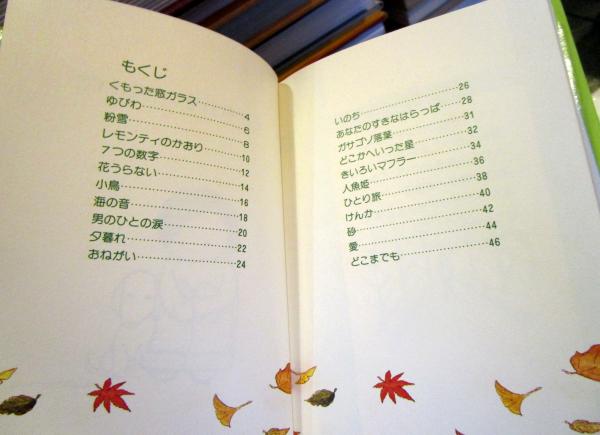 もくじ
くもった窓ガラス……………4
ゆびわ……………6
粉雪……………8
レモンティのかおり……………10
７つの数字……………12
花うらない……………14
小鳥……………16
海の音……………18
男のひとの涙……………20
夕暮れ……………22
おねがい……………24
いのち……………26
あなたのすきなはらっぱ……………28
ガサゴソ落葉……………31
どこかへいった星……………32
きいろいマフラー……………34
人魚姫……………36
ひとり旅……………38
けんか……………40
砂……………42
愛……………44
どこまでも……………46